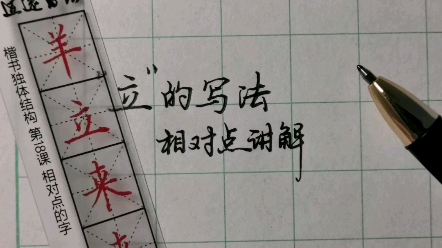 羊
立
来
楷书独体结构 第18课 相对点的字
立"的写法
相对点讲解